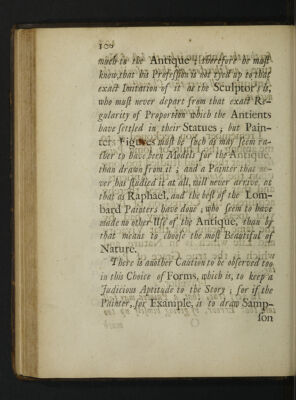 100
much in the Antique; therefore he must
know, that his Profession is not tyed up to that
exact Imitation of it as the Sculptor's is,
who must never depart from that exact Re-
gularity of Proportion which the Antients
have setled in their Statues; but Pain-
ters Figures must be such as may seem ra-
ther to have been Models for the Antique,
than drawn from it; and a Painter that ne-
ver has studied it at all, will never arrive at
that as Raphael, and the best of the Lom-
bard Painters have done; who seem to have
made no other Use of the Antique, than by
that means to choose the most Beautiful of
Nature.
There is another Caution to be observed too
in this Choice of Forms, which is, to keep a
Judicious Aptitude to the Story; for if the
Painter, for Example, is to draw Samp-
son